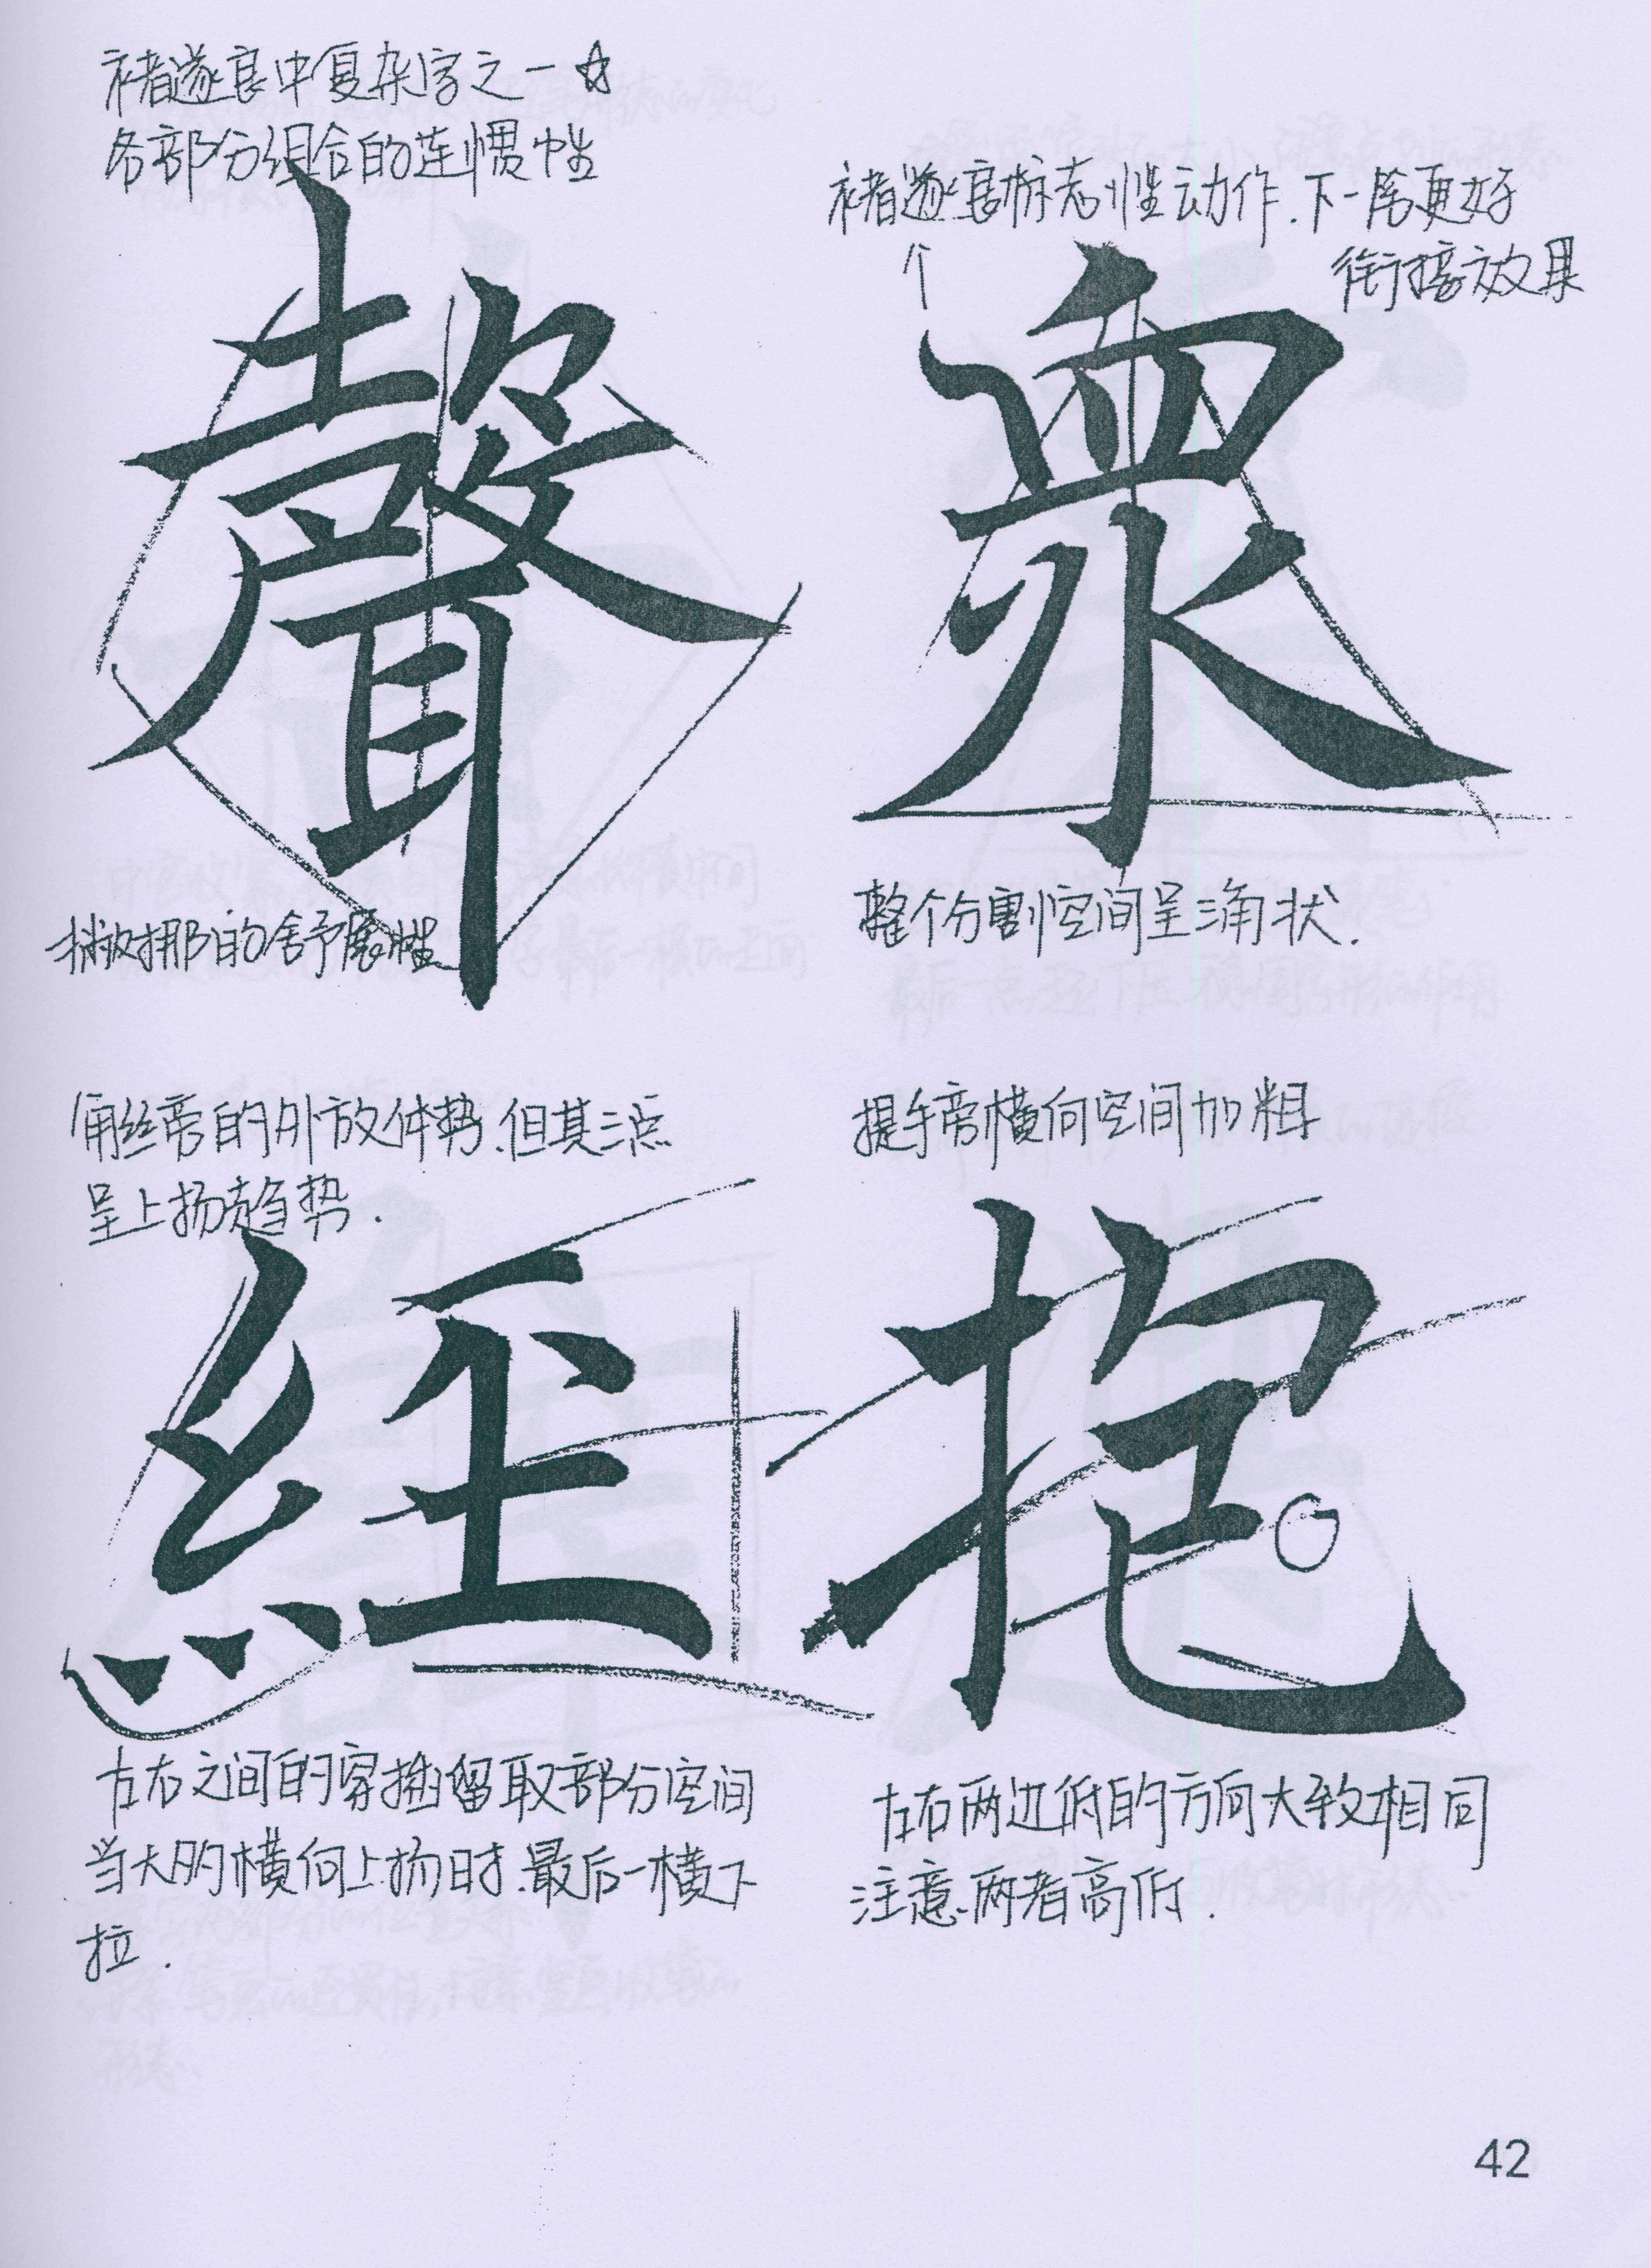 褚遂良中复杂字之一☆
各部分组合的连惯性
聲
捺撇挪的舒展性
褚遂良标志性动作.下一层更好
衔接效果
眾
整个分割空间呈三角状.
绞丝旁的外放体势.但其三点
呈上扬趋势.
經
左右之间的穿插留取部分空间
当大的横向上扬时.最后一横下
拉.
提手旁横向空间加粗
抱
左右两边低的方向大致相同
注意两者高低.
42